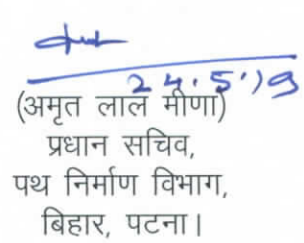 24.5.19
(अमृत लाल मीणा)
प्रधान सचिव,
पथ निर्माण विभाग,
बिहार, पटना।